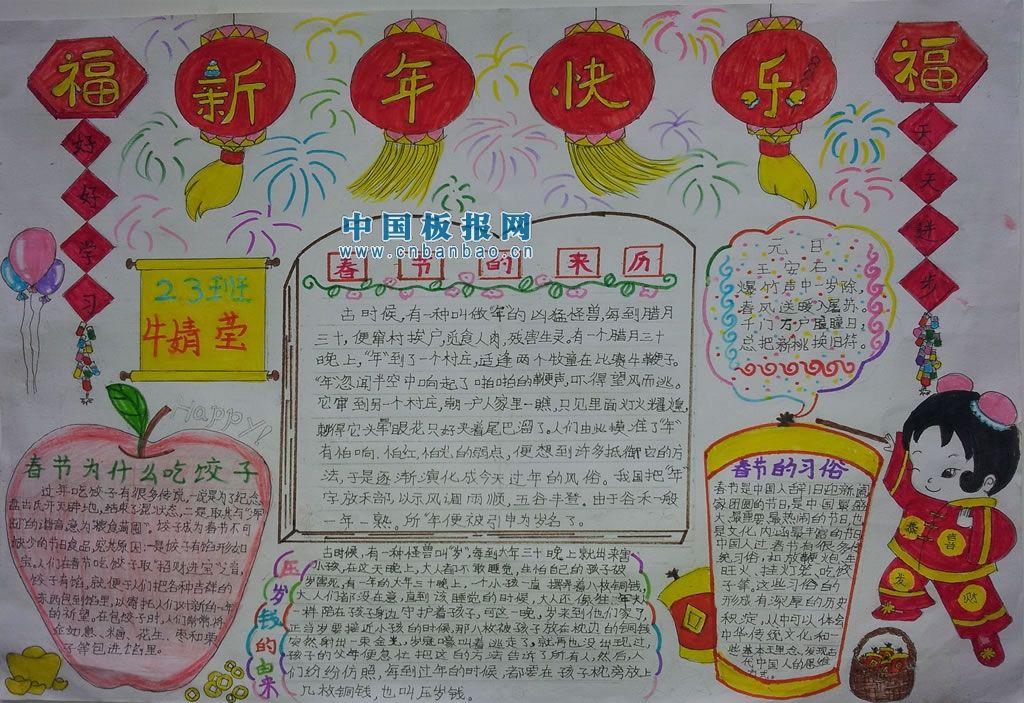 福
新年快乐
福
好好学习
天天进步
中国板报网
www.cnbanbao.cn
23班
牛婧莹
春节的来历
古时候,有一种叫做“年”的凶猛怪兽,每到腊月
三十,便窜村挨户,觅食人肉,残害生灵。有一个腊月三十
晚上,“年”到了一个村庄,适逢两个牧童在比赛牛鞭子。
“年”忽闻半空中响起了啪啪的鞭声,吓得望风而逃。
它窜到另一个村庄,朝一户人家里一瞧,只见里面灯火耀煌,
刺得它头晕眼花只好夹着尾巴溜了。人们由此摸准了“年”
有怕响,怕红,怕光的弱点,便想到许多抵御它的方
法,于是逐渐演化成今天过年的风俗。我国把“年”
字放禾部,以示风调雨顺,五谷丰登。由于谷禾一般
一年一熟。所“年”便被引申为岁名了。
元日
王安石
爆竹声中一岁除,
春风送暖入屠苏。
千门万户曈曈日,
总把新桃换旧符。
Happy!
春节为什么吃饺子
过年吃饺子有很多传说,一说是为了纪念
盘古氏开天辟地,结束了混状态,二是取其与“浑
囤”的谐音,意为“粮食满囤”。饺子成为春节不可
缺少的节日食品,究其原因:一是饺子形如
宝,人们在春节吃饺子取“招财进宝”之音,
饺子有馅,就便于人们把各种吉祥的
东西包到馅里,以寄托人们对新的一年
的祈望。在包饺子时,人们常常将
在如惠、糖、花生、枣和栗
子等包进馅里。
压岁钱的由来
古时候,有一种怪兽叫“岁”,每到大年三十晚上就出来害
小孩,在这天晚上,大人都不敢睡觉,在怕自己的孩子被
岁害死,有一年的大年三十晚上,一个小孩一直摆弄着八枚铜钱,
大人们都没在意,直到该睡觉的时候,大人还像往年
一样陪在孩子身边守护着孩子,可这一晚,岁来到他们家了,
正当岁要接近小孩的时候,那八枚被孩子放在枕边的铜钱
突然射出一束金光,岁嚎叫着逃走了,就再也没出现过,
孩子的父母便急忙把这个方法告诉了所有人,然后人
们纷纷仿照,每到过年的时候,都要在孩子枕旁放上
几枚铜钱,也叫压岁钱。
春节的习俗
春节是中国人辞旧迎新阖
家团圆的节日,是中国最盛
大最重要最热闹的节日,也
是文化内涵最丰富的节日,
中国人过春节有很多传
统习俗,如放爆火炮衣
旺火、挂灯笼、吃饺
子等。这些习俗的
形成有深厚的历史
积淀,从中可以体会
中华传统文化和一
些基本理念,发现古
代中国人的思维
方式。
恭喜
发财